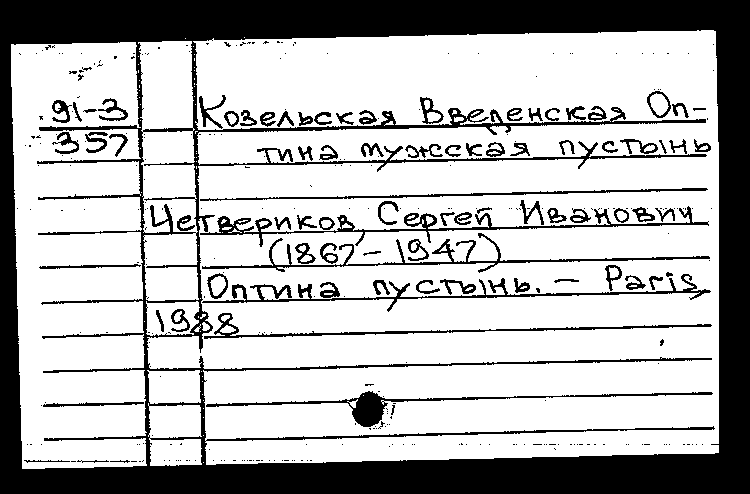 91-3 Козельская Введенская Оп-
357 тина мужская пустынь
Четвериков, Сергей Иванович
(1867-1947)
Оптина пустынь. - Paris,
1988